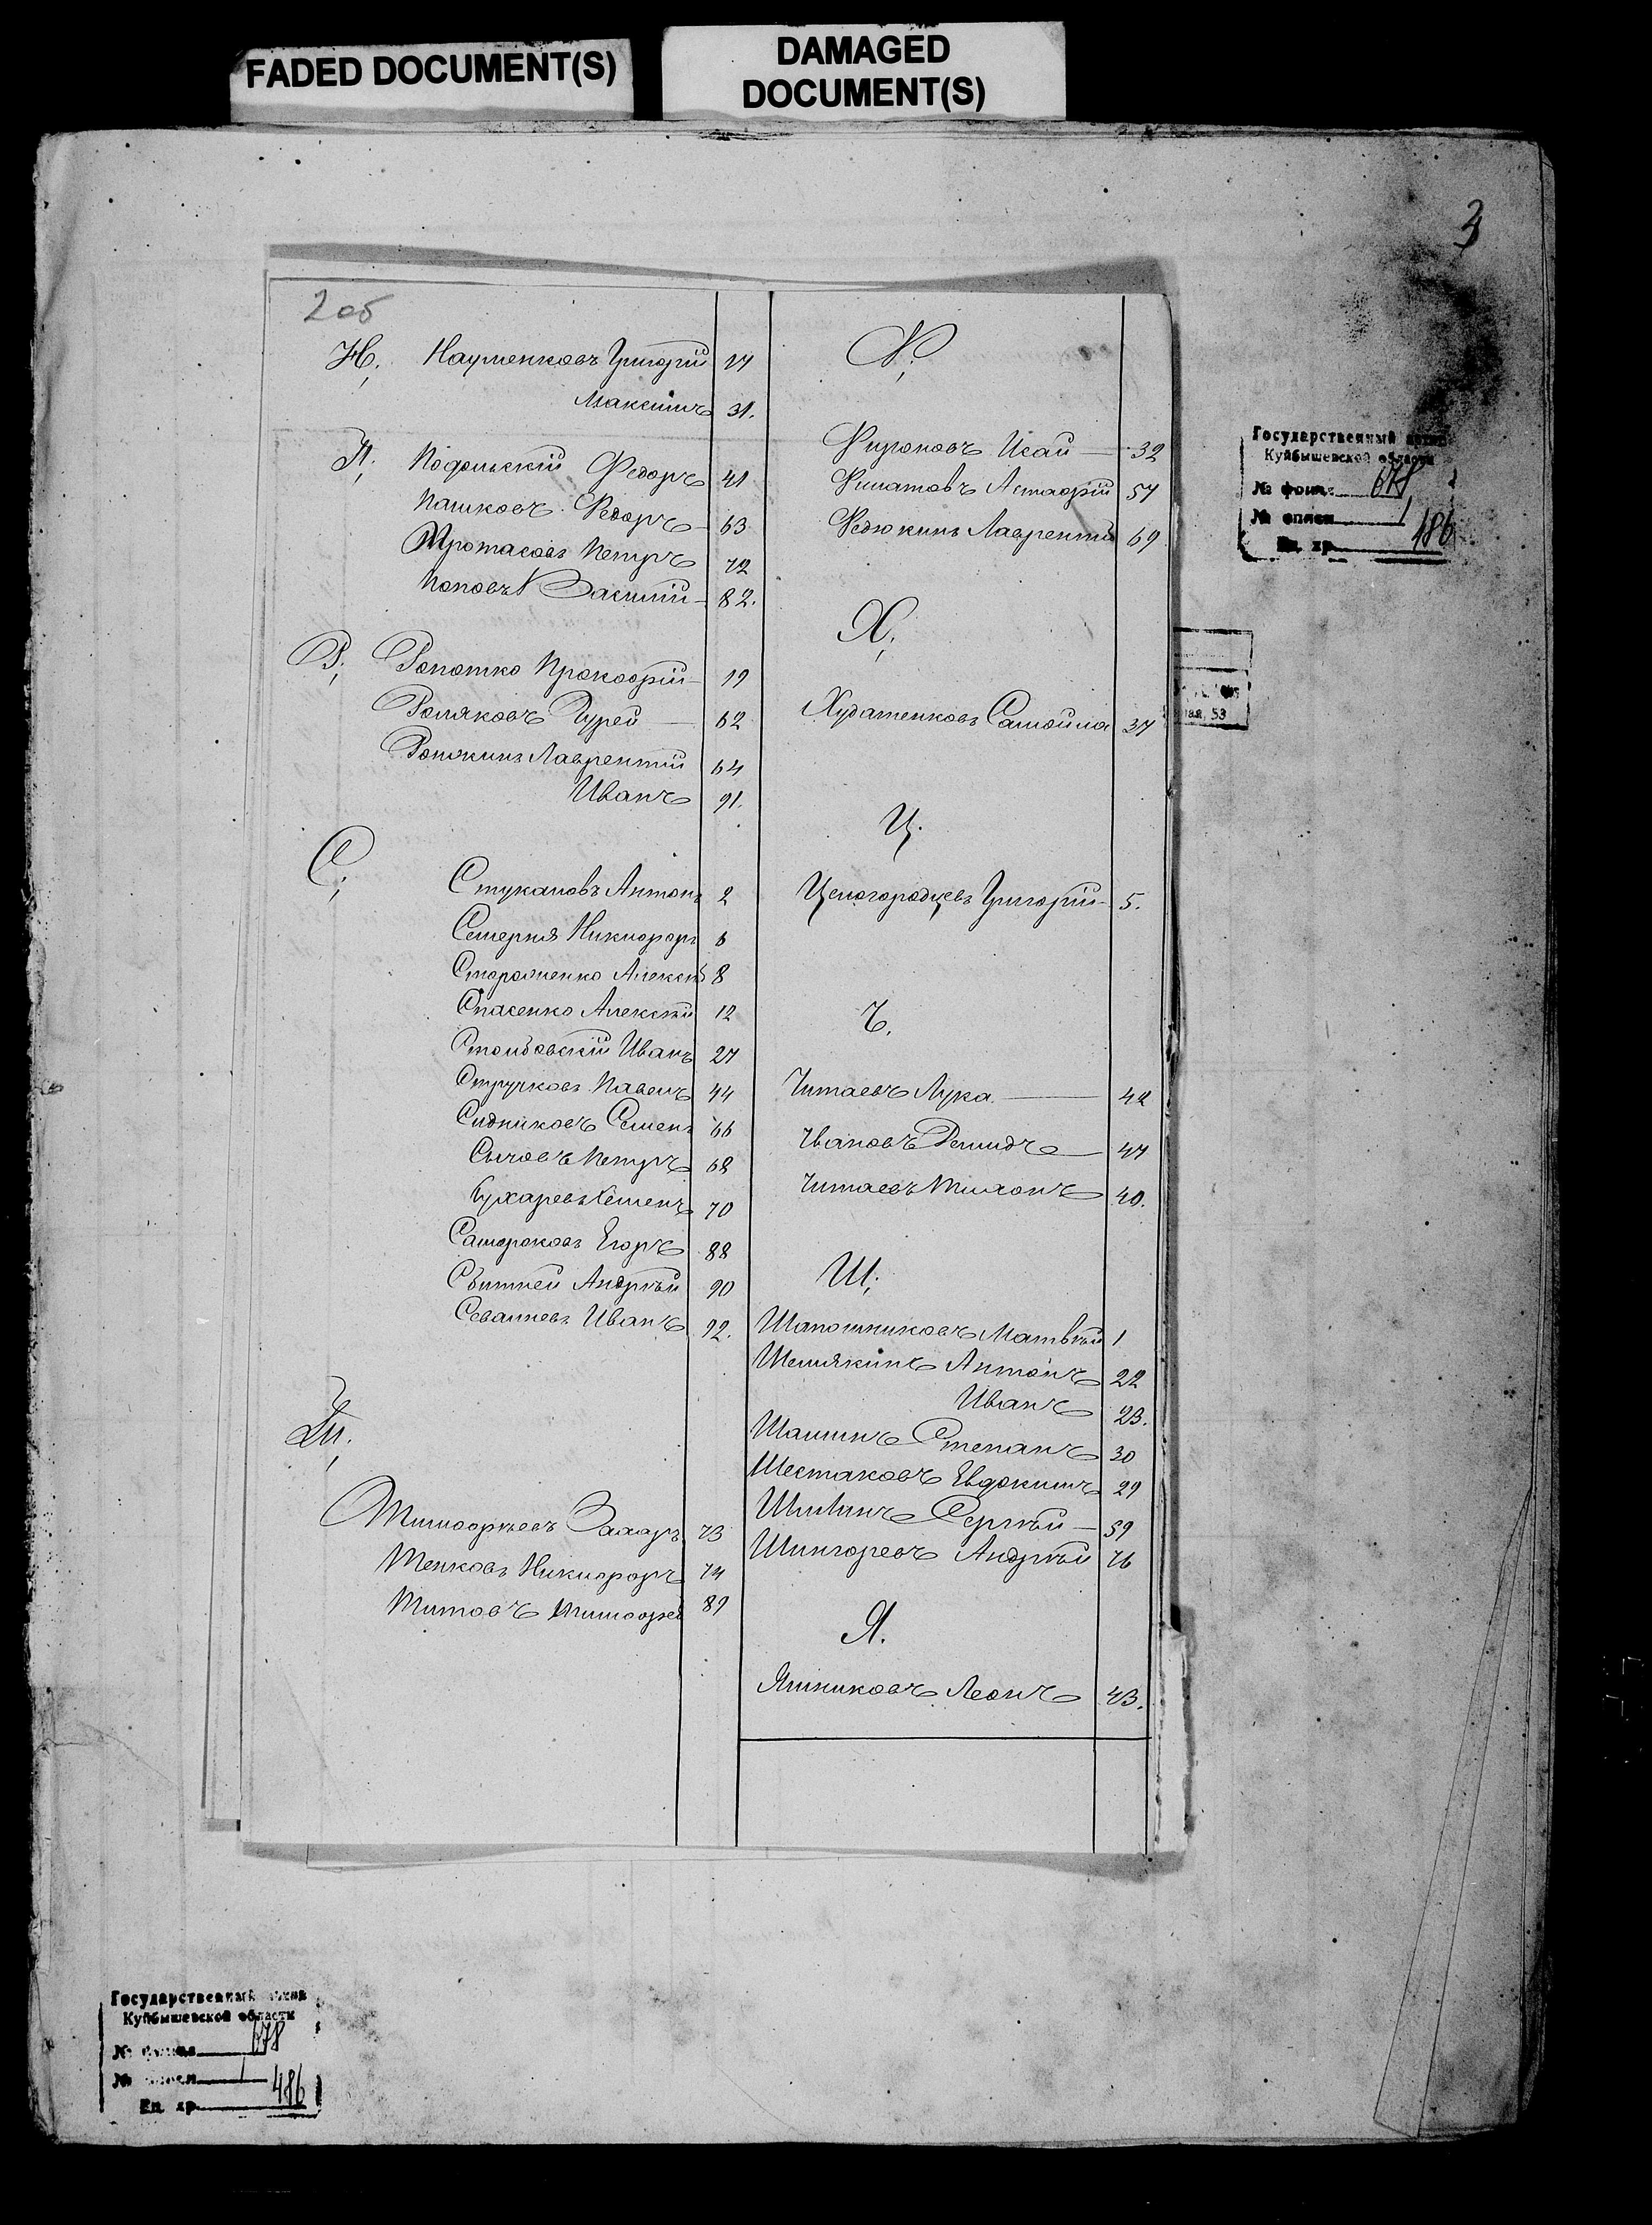 FADED DOCUMENT(S)
DAMAGED
DOCUMENT(S)
3
2 об
Н;
Науменковъ Григорій 17
Максимъ 31.
П;
Подольскій Федоръ 41
Пашковъ Федоръ 63
Протасовъ Петръ 72
Поповъ Василій 82.
Р;
Ропотко Прокофій 19
Роляковъ Гурей 62
Ролякинъ Лаврентій 64
Иванъ 91.
С;
Стукановъ Антонъ 2
Семерня Никифоръ 6
Стороженко Алексѣй 8
Спасенко Алексѣй 12
Столбовскій Иванъ 27
Стручковъ Павелъ 44
Сидниковъ Семенъ 66
Сычовъ Петръ 68
Сухаревъ Семенъ 70
Самороковъ Егоръ 88
Сытней Андрѣй 90
Севалневъ Иванъ 92.
Т;
Тимофѣевъ Захаръ 73
Тепковъ Никифоръ 74
Титовъ Тимофей 89
Ф;
Фироновъ Исай 32
Филатовъ Астафій 57
Федюкинъ Лаврентій 69
Х;
Худатенковъ Самойла 37
Ц.
Целогородцевъ Григорій 5.
Ч.
Читаевъ Лука 42
Чвановъ Демидъ 47
Читаевъ Тихонъ 40.
Ш;
Шапошниковъ Матвѣй 1
Шемякинъ Антонъ 22
Иванъ 23.
Шашинъ Степанъ 30
Шестаковъ Евдокимъ 29
Шишинъ Сергѣй 59
Шингоревъ Андрѣй 76
Я.
Яшниковъ Леонъ 43.
Государственный архив
Куйбышевской области
№ фонда 678
№ описи 1
Ед. хр. 486
53
Государственный архив
Куйбышевской области
№ фонда 678
№ описи 1
Ед. хр. 486